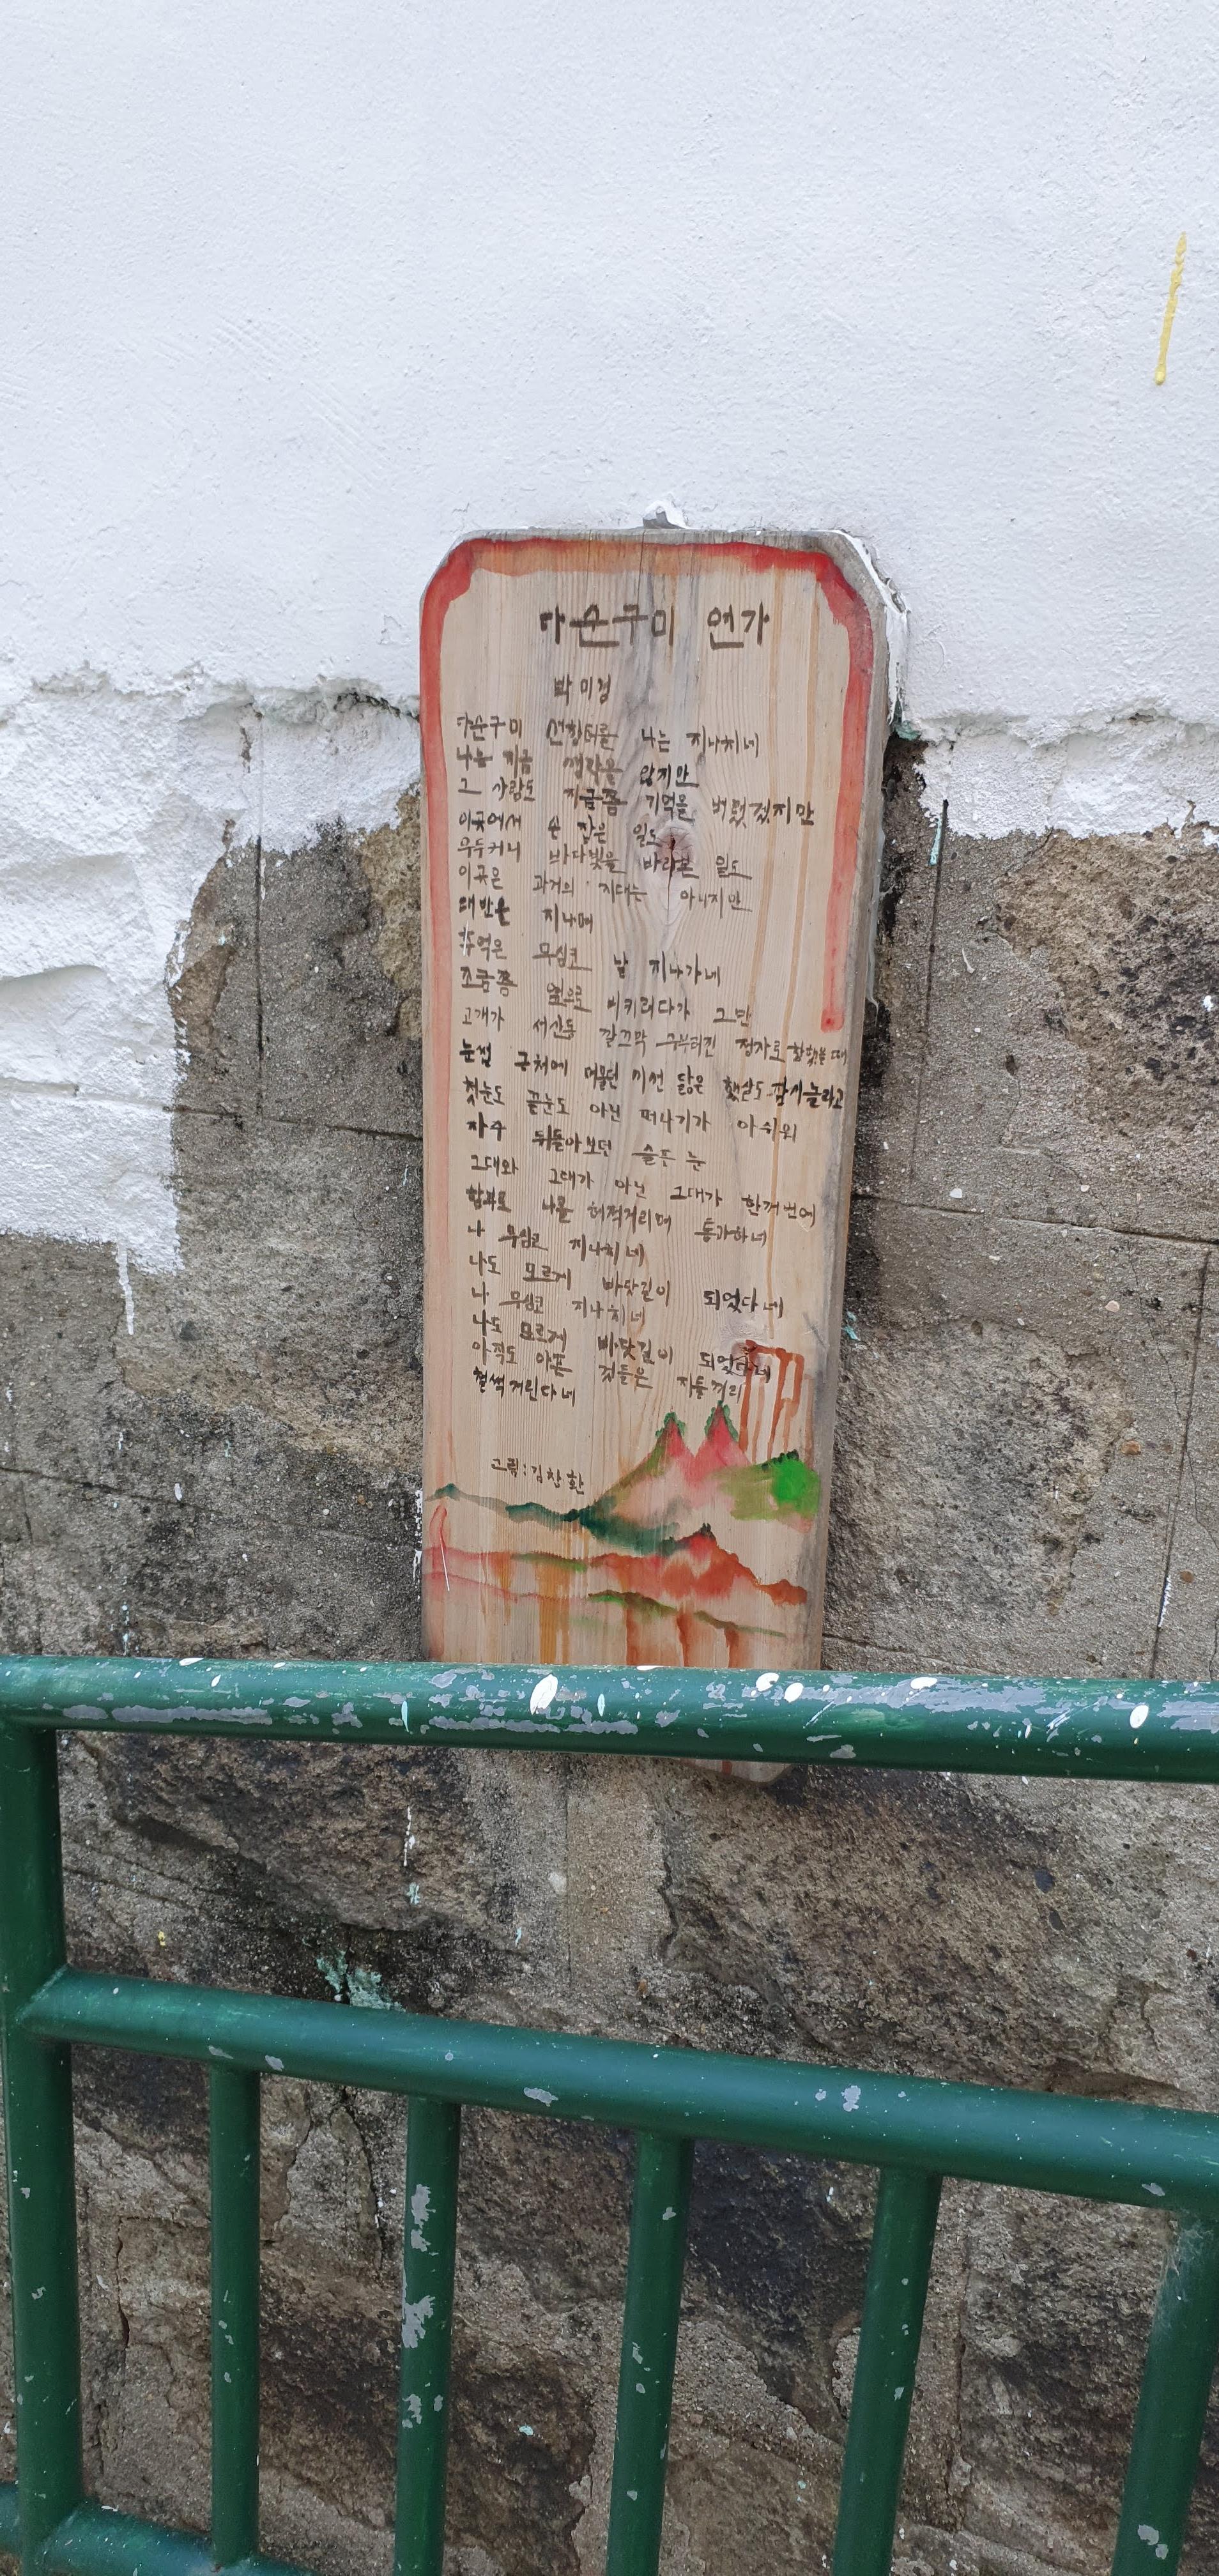 다순구미 연가
박미경
다순구미 선창터를 나는 지나치네
나는 지금 생각을 않지만
그 사람도 지금쯤 기억을 버렸겠지만
이곳에서 손 잡은 일도
우두커니 바다빛을 바라본 일도
이곳은 과거의 지대는 아니지만
대반동 지나며
추억은 무심코 날 지나가네
조금쯤 옆으로 비키려다가 그만
고개가 서산동 깔끄막 구부러진 점자로 향했을 때
눈썹 근처에 머물던 미선 닮은 햇살도 잠시놀라고
첫눈도 끝눈도 아닌 떠나기가 아쉬워
자주 뒤돌아보던 슬픈 눈
그대와 그대가 아닌 그대가 한꺼번에
함부로 나를 허적거리며 통과하네
나 무심코 지나치네
나도 모르게 바닷길이 되었다네
나 무심코 지나치네
나도 모르게 바닷길이 되었다네
아직도 아픈 것들은 지들끼리
철썩거린다네
그림:김찬환